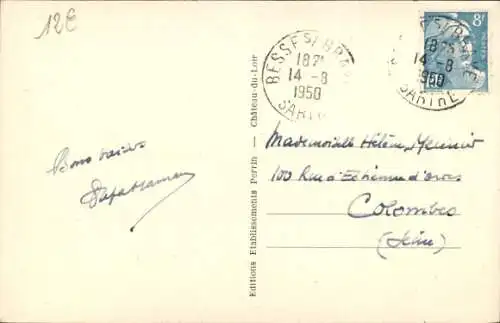 12€
BESSE S/ BRAYE
18 25
14 -8
1950
SARTHE
BESSE S/ BRAYE
18 25
14 -8
1950
SARTHE
8F
Bons baisers
Papa Maman
Editions Etablissements Perrin — Château-du-Loir
Mademoiselle Hélène
100 Rue d'Estienne d'orves
Colombes
(Seine)